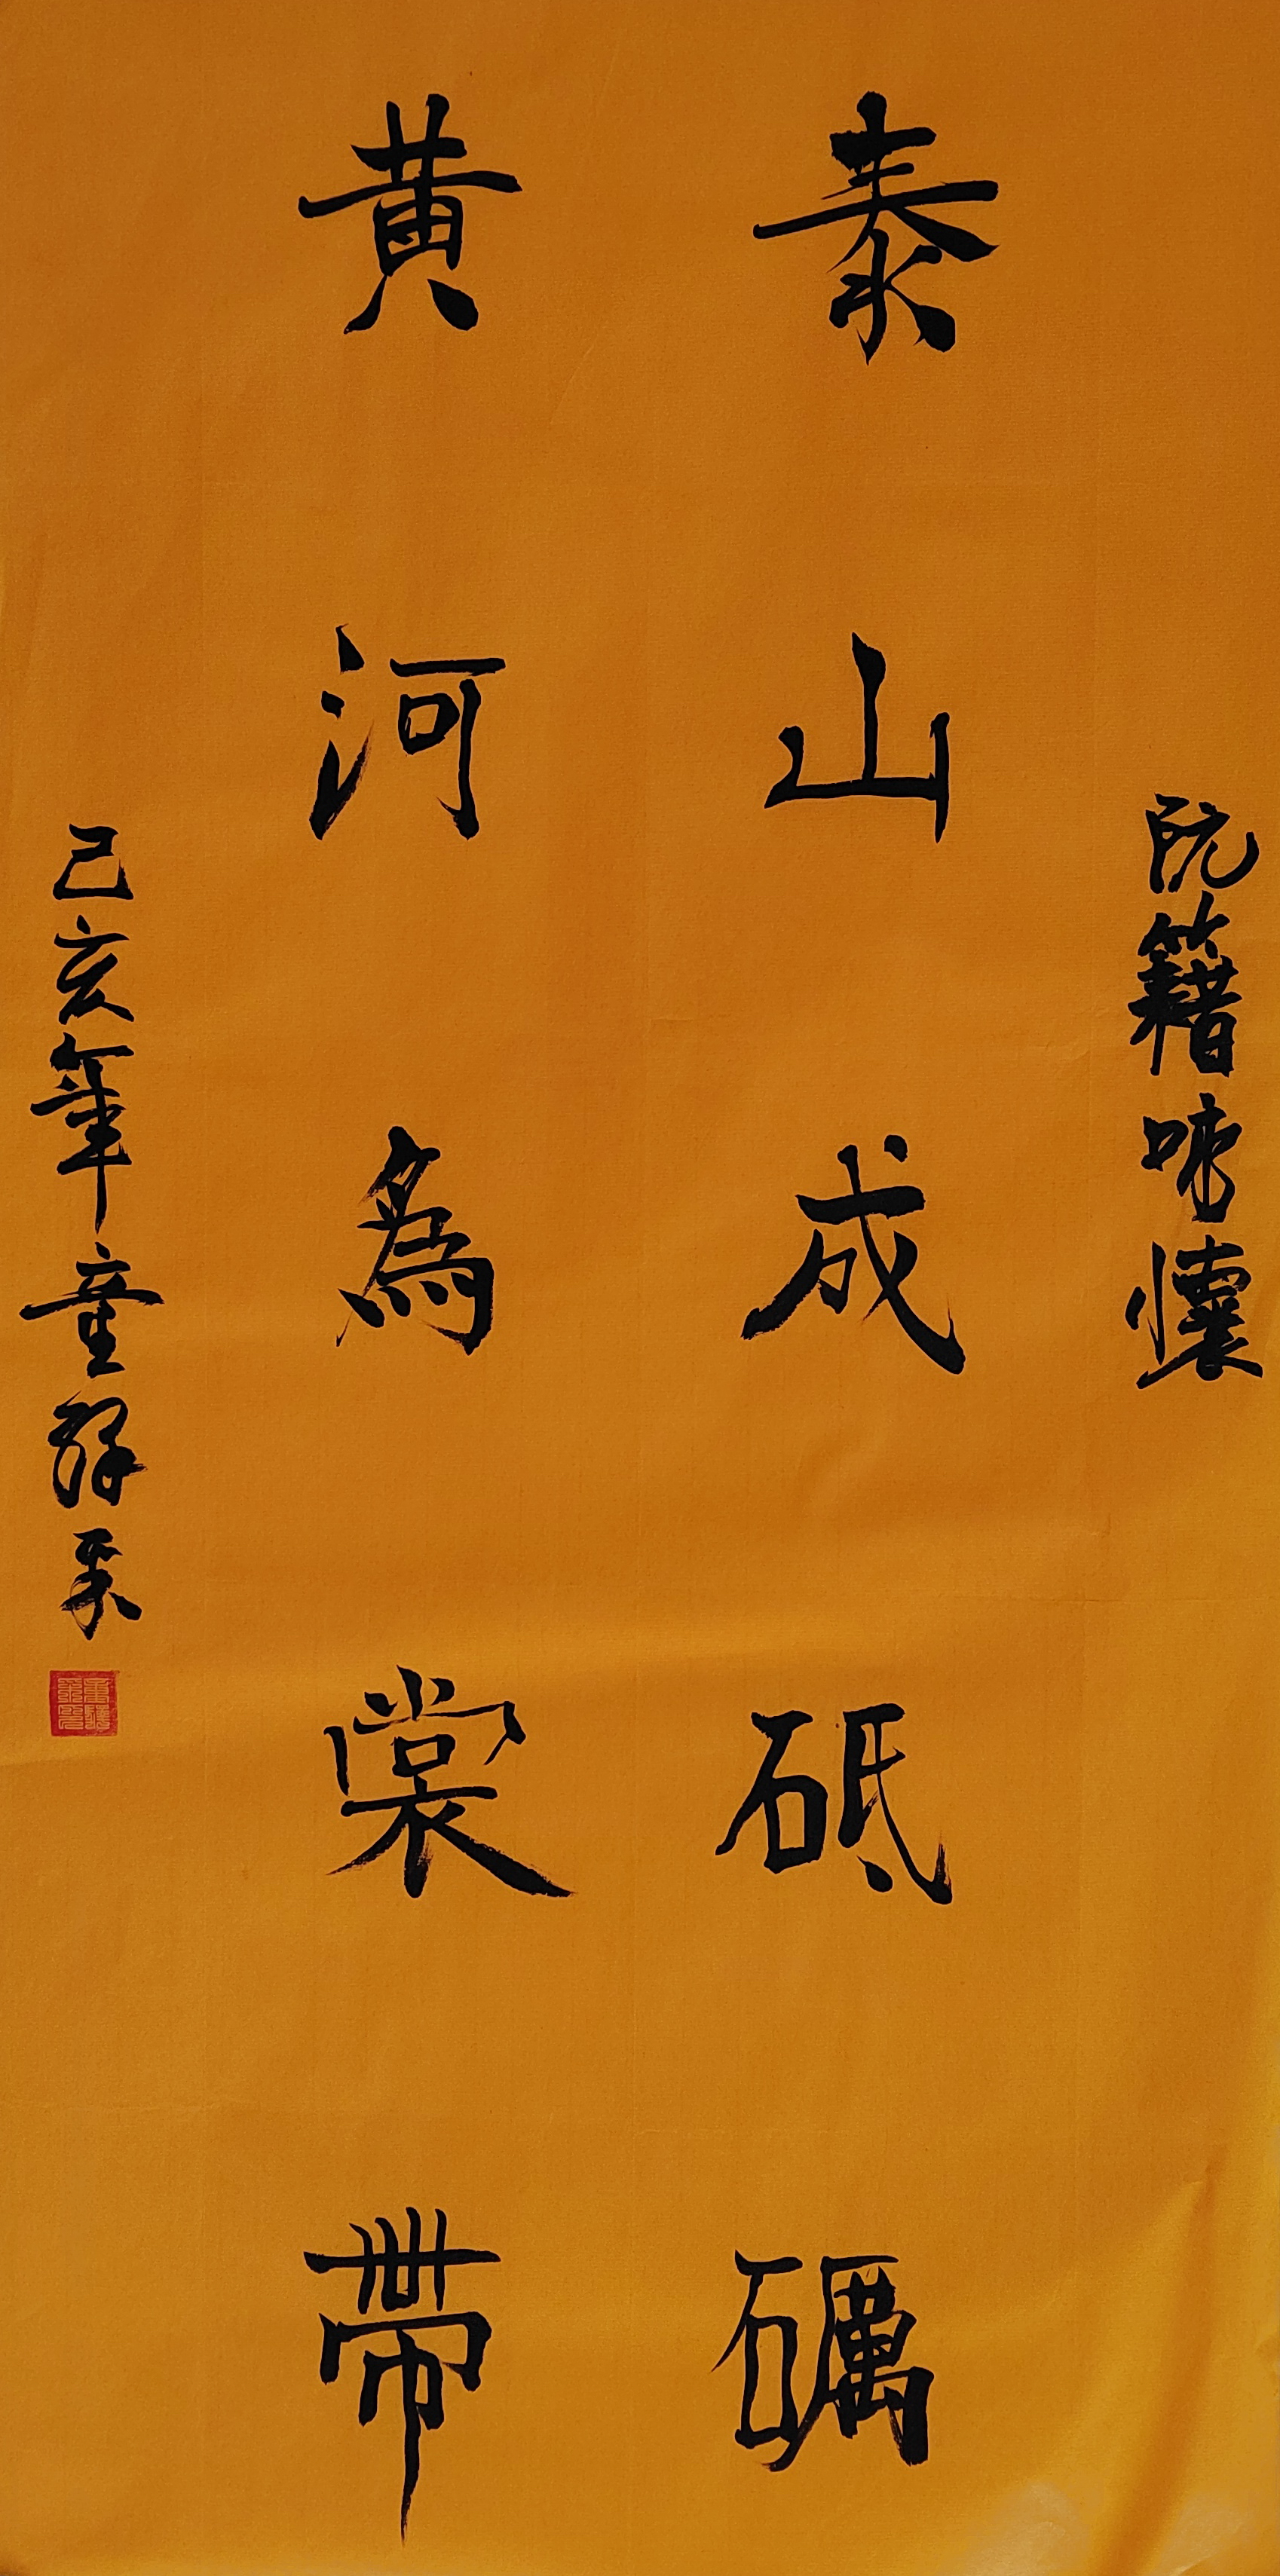 阮籍咏懷
泰山成砥礪
黃河為裳帶
己亥年童辉